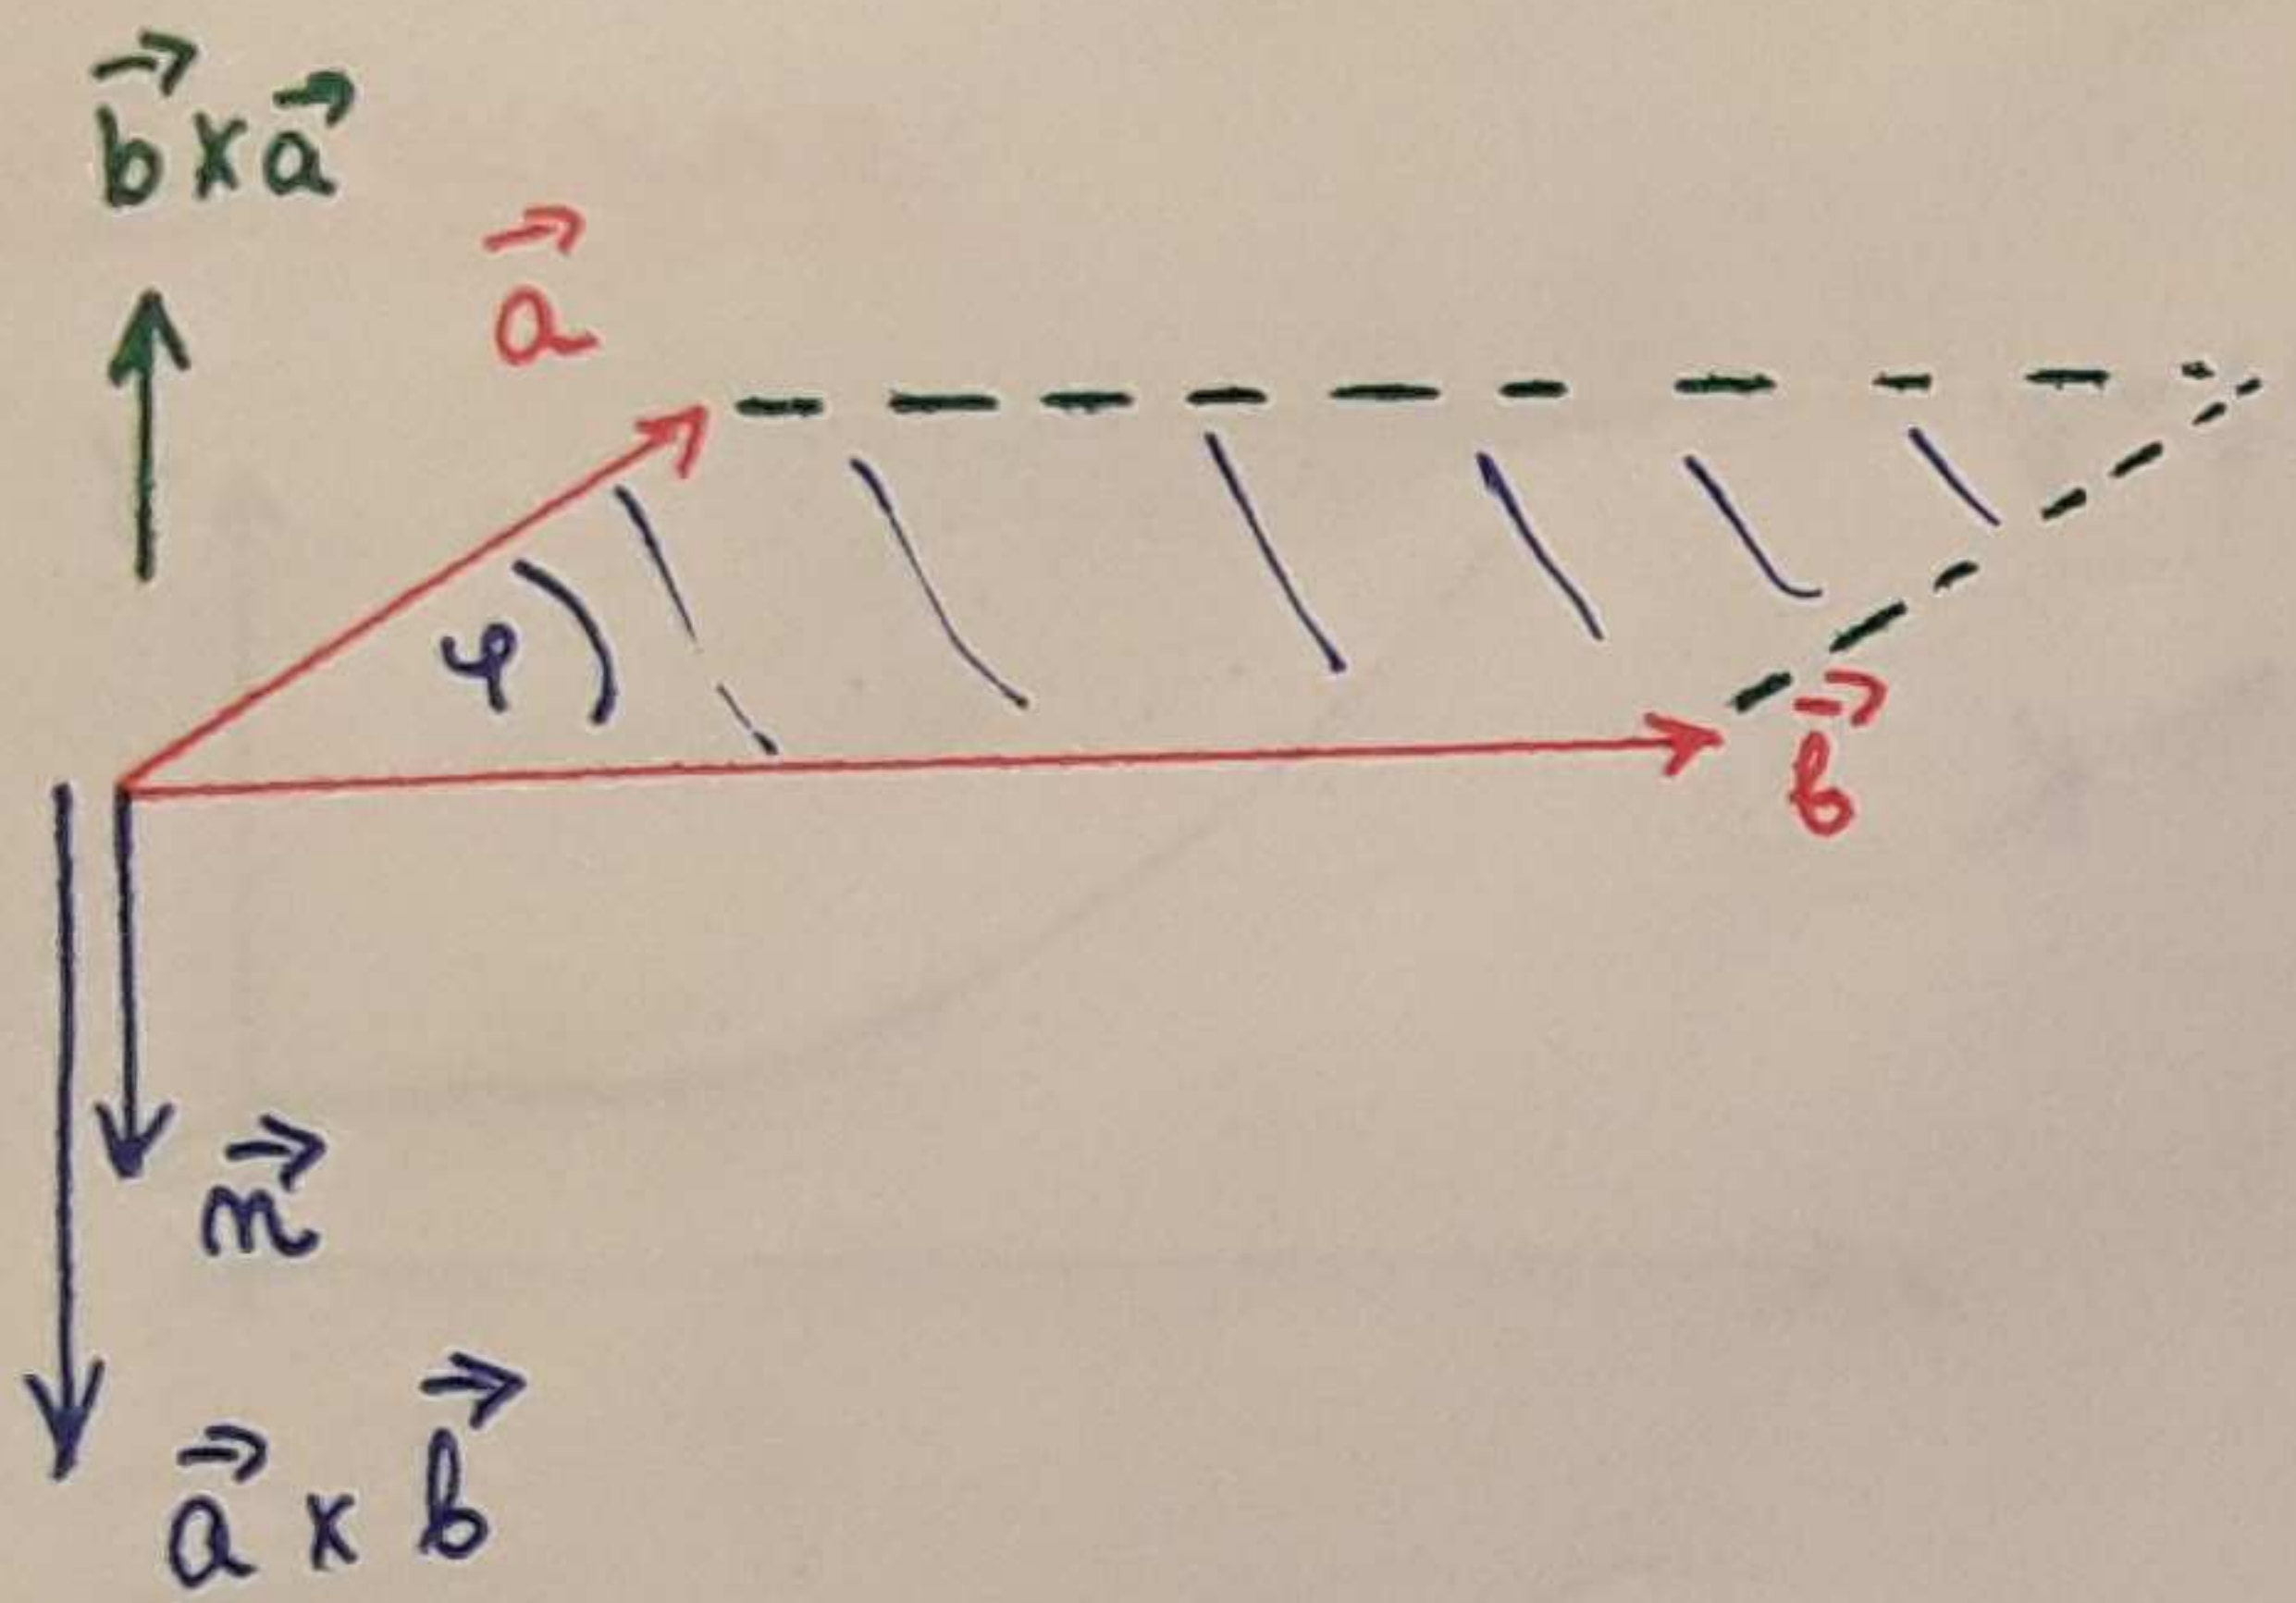 b⃗ × a⃗
a⃗
φ
b⃗
n⃗
a⃗ × b⃗